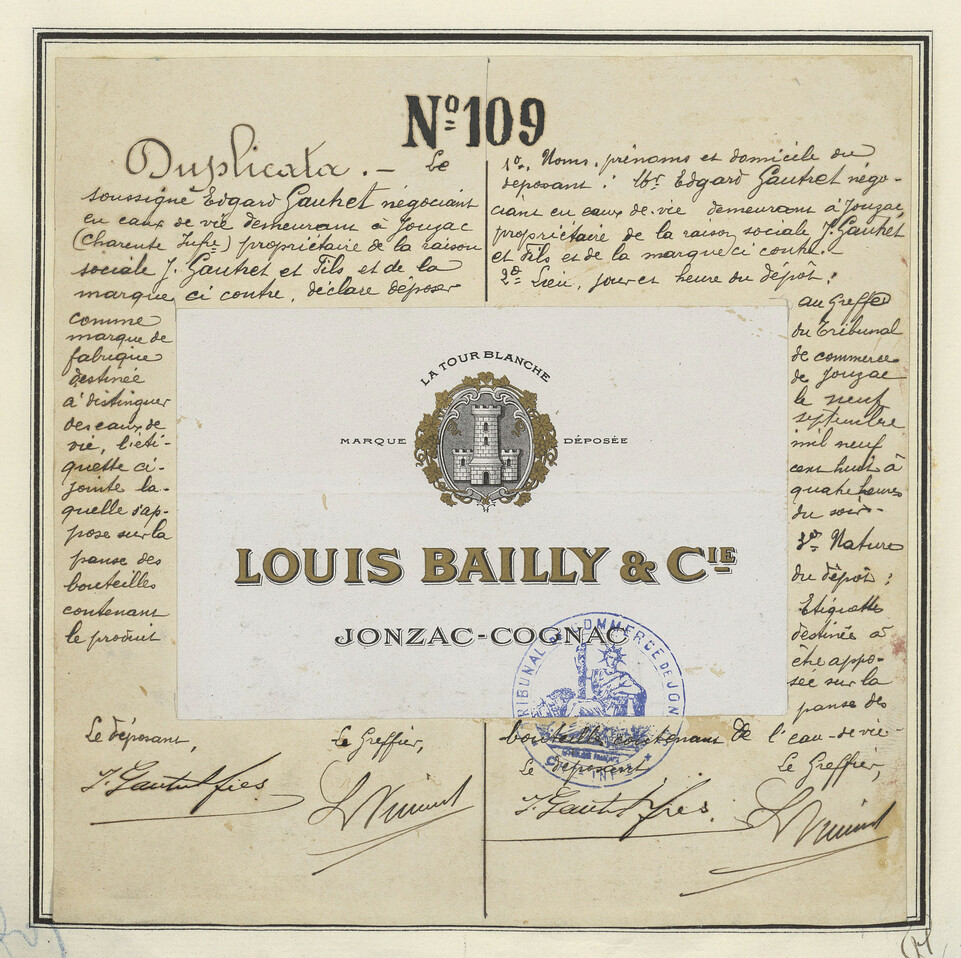 Nº 109
Duplicata. - Le
soussigné Edgard Gautret négociant
en eaux de vie demeurant à Jonzac
(Charente Infre) propriétaire de la raison
sociale J. Gautret et Fils, et de la
marque ci contre, déclare déposer
comme
marque de
fabrique
destinée
à distinguer
des eaux de
vie, l'éti-
quette ci-
jointe la-
quelle s'ap-
pose sur la
panse des
bouteilles
contenant
le produit
Le déposant,
Le Greffier,
J. Gautret fils
1º. Noms, prénoms et domicile du
déposant : Mr Edgard Gautret négo-
ciant en eaux-de-vie demeurant à Jonzac,
propriétaire de la raison sociale J. Gautret
et Fils et de la marque ci contre.
2º Lieu, jour et heure du dépôt :
au Greffe
du Tribunal
de commerce
de Jonzac
le neuf
septembre
mil neuf
cent huit à
quatre heures
du soir
3º Nature
du dépôt :
Etiquette
destinée à
être appo-
sée sur la
panse des
bouteilles contenant de l'eau-de-vie
Le déposant
Le Greffier,
J. Gautret fils.
LA TOUR BLANCHE
MARQUE DÉPOSÉE
LOUIS BAILLY & CIE
JONZAC-COGNAC
TRIBUNAL DE COMMERCE DE JON